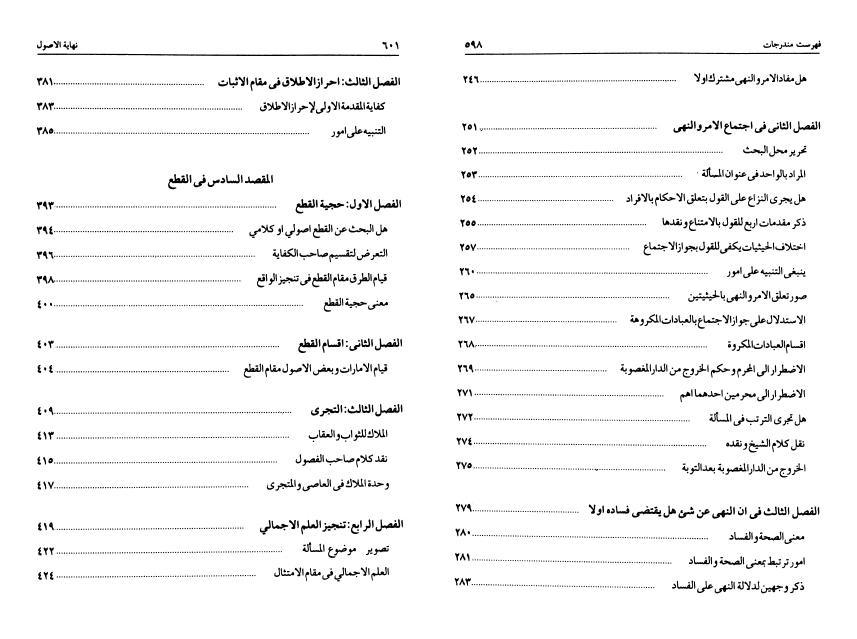 فهرست مندرجات ٥٩٨
هل مفاد الامر و النهى مشترك اولا ٢٤٦
الفصل الثانى فى اجتماع الامر و النهى ٢٥١
تحرير محل البحث ٢٥٢
المراد بالواحد فى عنوان المسألة ٢٥٣
هل يجرى النزاع على القول بتعلق الاحكام بالافراد ٢٥٤
ذكر مقدمات اربع للقول بالامتناع و نقدها ٢٥٥
اختلاف الحيثيات يكفى للقول بجواز الاجتماع ٢٥٧
ينبغى التنبيه على امور ٢٦٠
صور تعلق الامر و النهى بالحيثيتين ٢٦٥
الاستدلال على جواز الاجتماع بالعبادات المكروهة ٢٦٧
اقسام العبادات المكروة ٢٦٨
الاضطرار الى المحرم وحكم الخروج من الدار المغصوبة ٢٦٩
الاضطرار الى محرمين احدهما اهم ٢٧١
هل تجرى الترتب فى المسألة ٢٧٢
نقل كلام الشيخ و نقده ٢٧٤
الخروج من الدار المغصوبة بعد التوبة ٢٧٥
الفصل الثالث فى ان النهى عن شئ هل يقتضى فساده اولا ٢٧٩
معنى الصحة و الفساد ٢٨٠
امور ترتبط بمعنى الصحة و الفساد ٢٨١
ذكر وجهين لدلالة النهى على الفساد ٢٨٣
٦٠١ نهاية الاصول
الفصل الثالث: احراز الاطلاق فى مقام الاثبات ٣٨١
كفاية المقدمة الاولى لإحراز الاطلاق ٣٨٣
التنبيه على امور ٣٨٥
المقصد السادس فى القطع
الفصل الاول: حجية القطع ٣٩٣
هل البحث عن القطع اصولي او كلامي ٣٩٤
التعرض لتقسيم صاحب الكفاية ٣٩٦
قيام الطرق مقام القطع فى تنجيز الواقع ٣٩٨
معنى حجية القطع ٤٠٠
الفصل الثانى: اقسام القطع ٤٠٣
قيام الامارات و بعض الاصول مقام القطع ٤٠٤
الفصل الثالث: التجرى ٤٠٩
الملاك للثواب و العقاب ٤١٣
نقد كلام صاحب الفصول ٤١٥
وحدة الملاك فى العاصى و المتجرى ٤١٧
الفصل الرابع: تنجيز العلم الاجمالي ٤١٩
تصوير موضوع المسألة ٤٢٢
العلم الاجمالى فى مقام الامتثال ٤٢٤